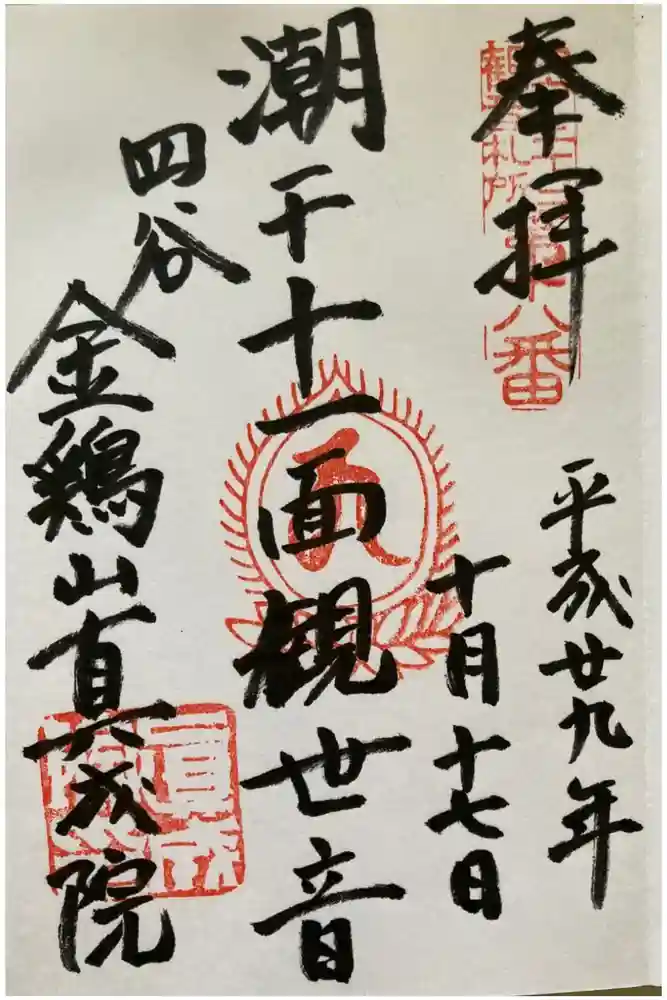 奉拝
八番
平成廿九年
十月十七日
潮干十一面観世音
四谷
金鶏山真成院